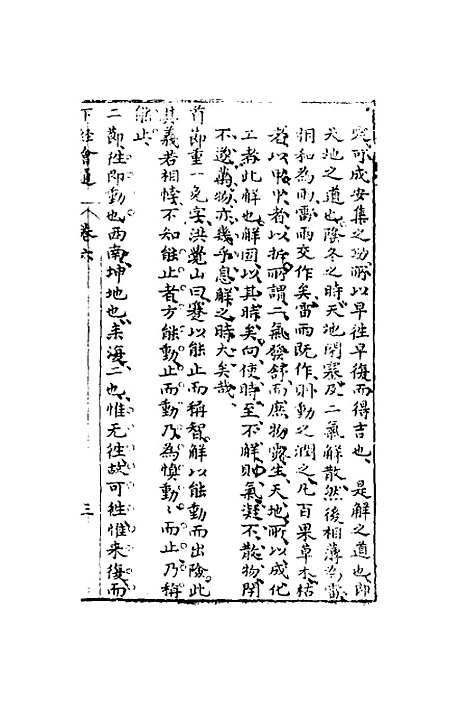 寬可成安集之功所以早往早復而得吉也 是解之道也即
天地之道也隆冬之時天地閉塞及二氣解散然後相薄為雷
絪和為雨雷雨交作矣雷雨既作則動之潤之凡百果草木枯
者以甲者以拆所謂二氣發舒而庶物露生天地所以成化
工者此解也解固以其時矣向使時至不解則氣凝不散物閉
不遂萬物亦幾乎息解之時大矣哉
首節重一免字洪覺山曰蹇以能止而稱智解以能動而出險此
其義若相悖不知能止者方能動止而動乃為慎動動而止乃稱
能止
二節往即動也西南坤地也來復二也惟无往故可往惟來復而
下經會通 卷六 三